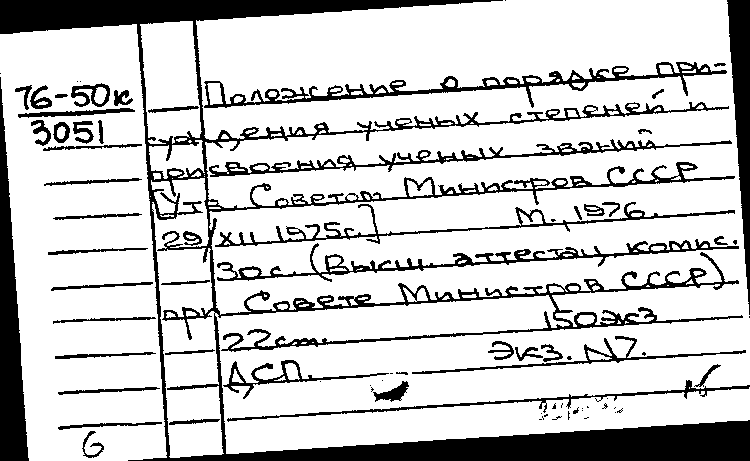 76-50к
3051
Положение о порядке при-
суждения ученых степеней и
присвоения ученых званий
[Утв. Советом Министров СССР
29/XII 1975г.] М., 1976.
30с. (Высш. аттестац. комис.
при Совете Министров СССР)
22см. 150экз
ДСП. Экз. N7.
6